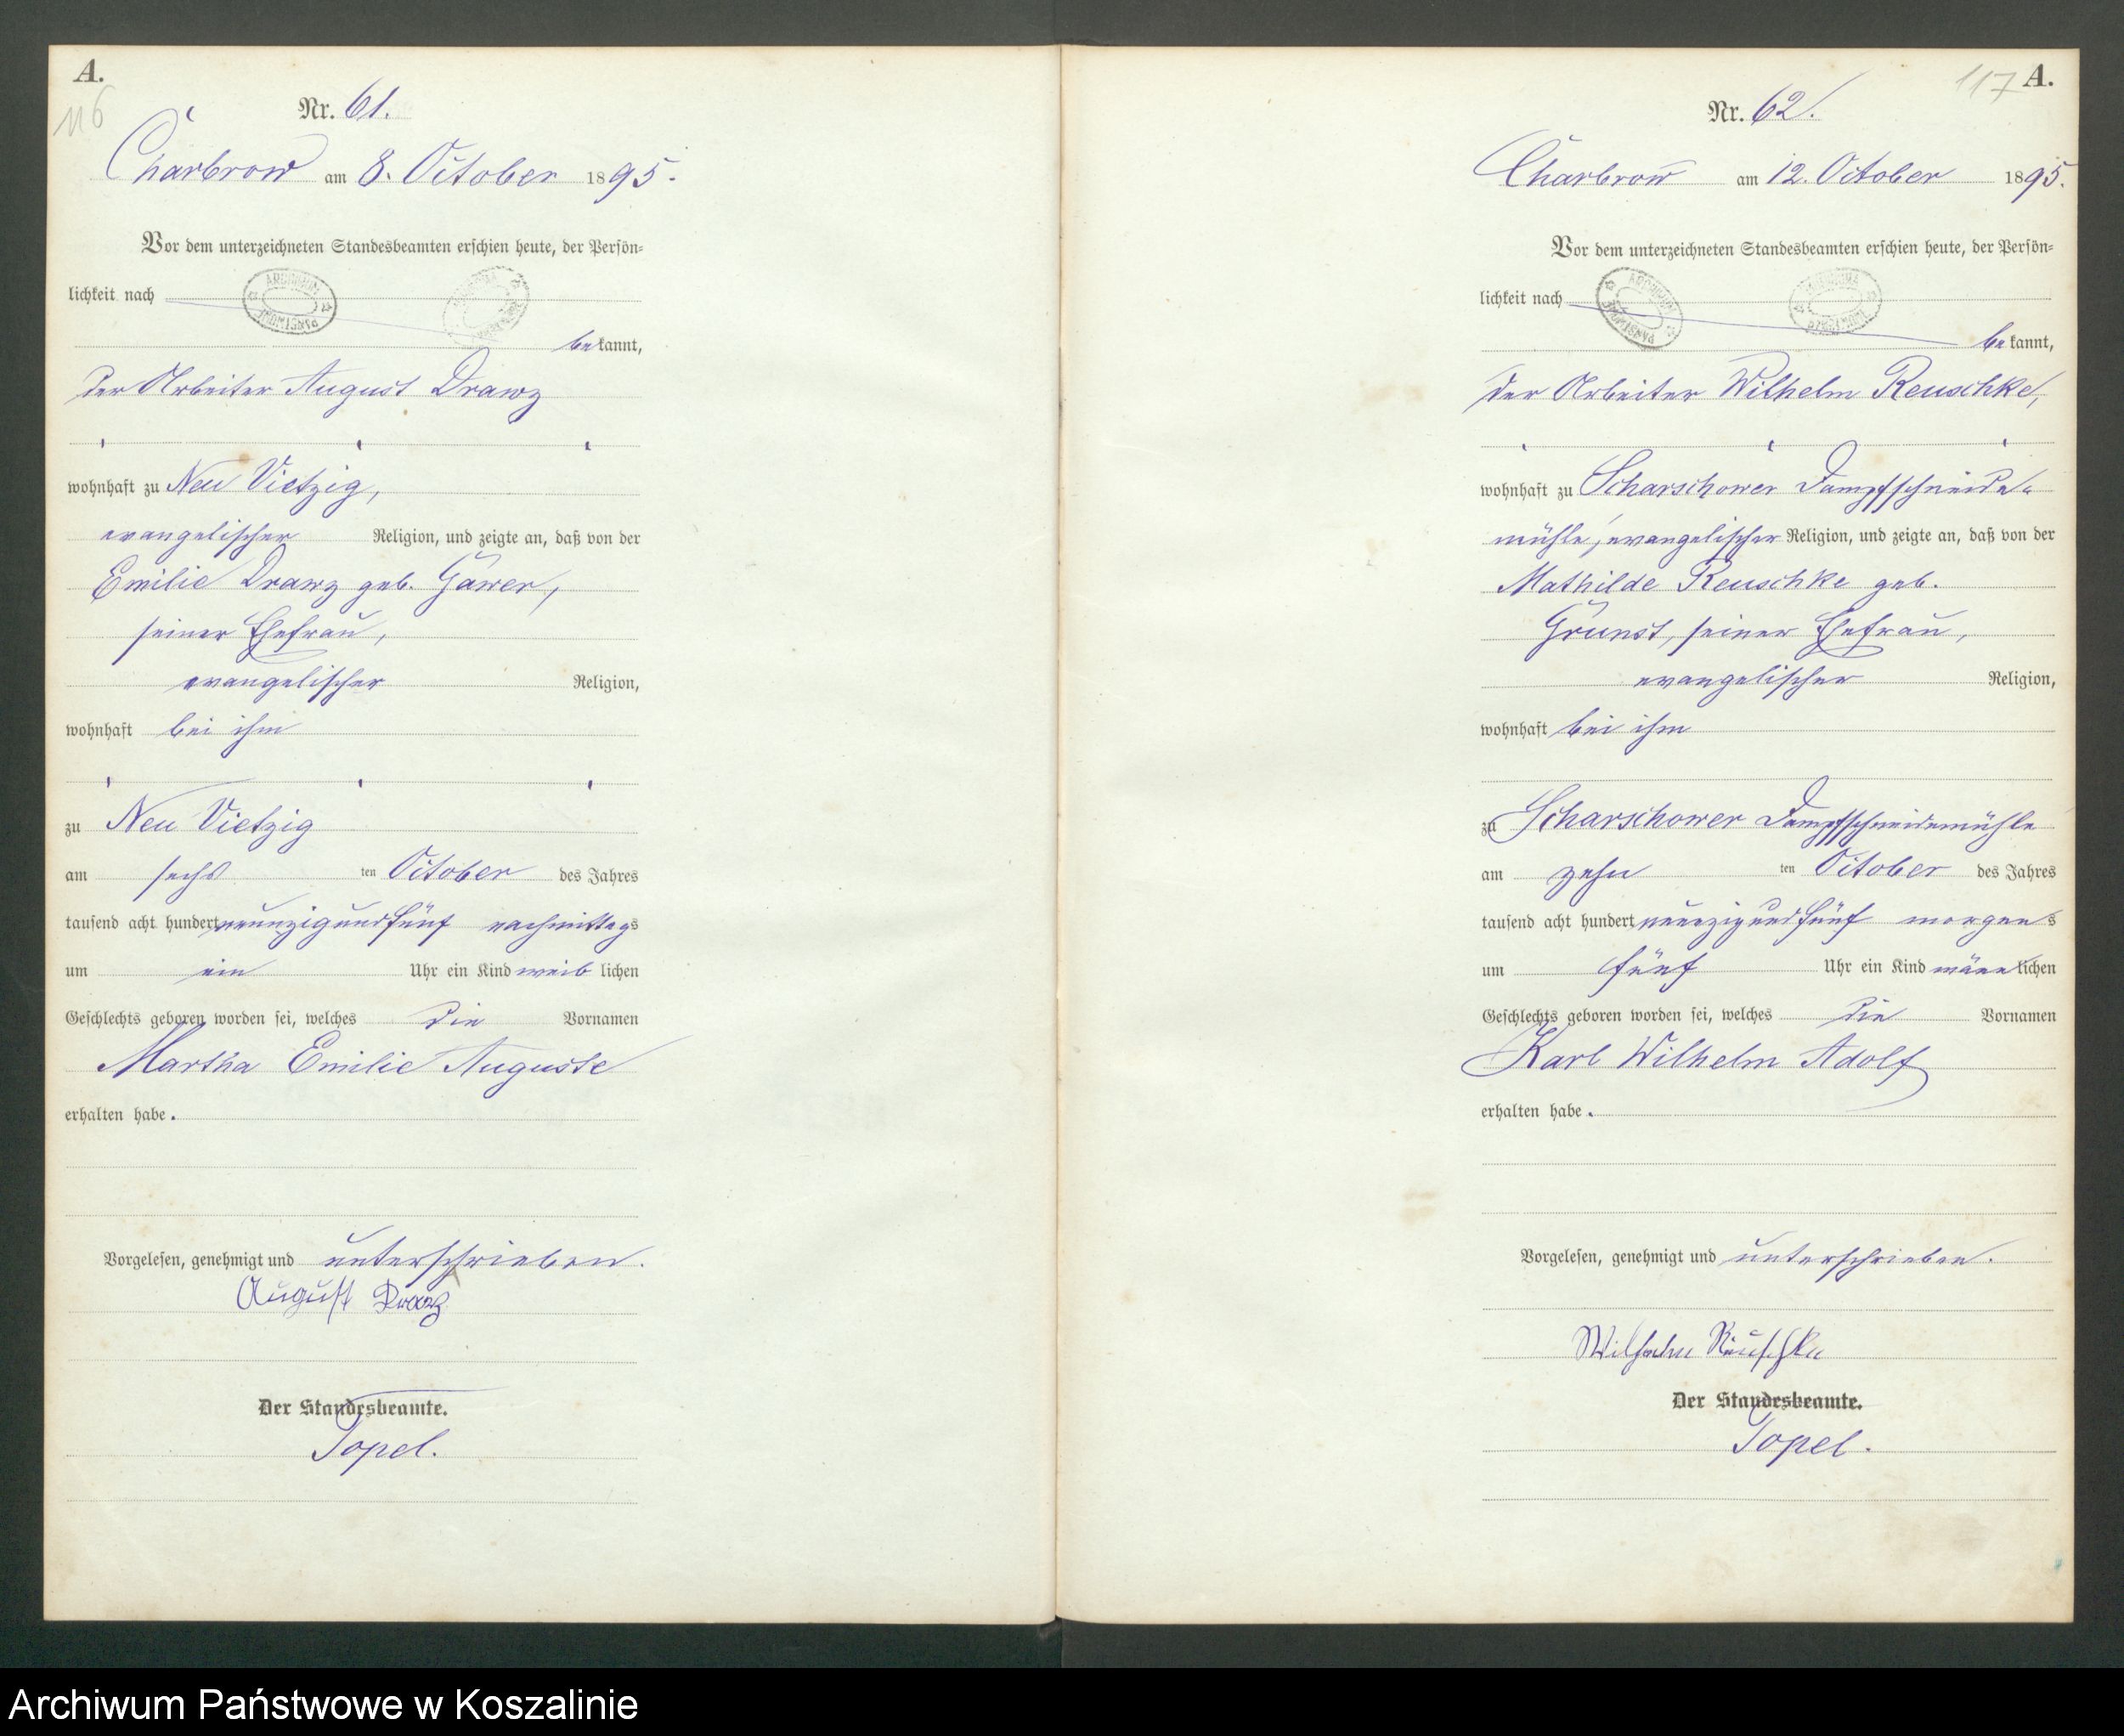 A.
116
Nr. 61.
Charbrow am 8. October 1895.
Vor dem unterzeichneten Standesbeamten erschien heute, der Persön=
lichkeit nach
bekannt,
der Arbeiter August Drawz
wohnhaft zu Neu Vietzig,
evangelischer Religion, und zeigte an, daß von der
Emilie Drawz geb. Gawer,
seiner Ehefrau,
evangelischer Religion,
wohnhaft bei ihm
zu Neu Vietzig
am sechsten October des Jahres
tausend acht hundert neunzig und fünf nachmittags
um ein Uhr ein Kind weiblichen
Geschlechts geboren worden sei, welches die Vornamen
Martha Emilie Auguste
erhalten habe.
Vorgelesen, genehmigt und unterschrieben.
August Drawz
Der Standesbeamte.
Topel.
117 A.
Nr. 62.
Charbrow am 12. October 1895.
Vor dem unterzeichneten Standesbeamten erschien heute, der Persön=
lichkeit nach
bekannt,
der Arbeiter Wilhelm Reuschke,
wohnhaft zu Scharschower Dampfschneide=
mühle, evangelischer Religion, und zeigte an, daß von der
Mathilde Reuschke geb.
Grunst, seiner Ehefrau,
evangelischer Religion,
wohnhaft bei ihm
zu Scharschower Dampfschneidemühle
am zehnten October des Jahres
tausend acht hundert neunzig und fünf morgens
um fünf Uhr ein Kind männlichen
Geschlechts geboren worden sei, welches die Vornamen
Karl Wilhelm Adolf
erhalten habe.
Vorgelesen, genehmigt und unterschrieben.
Wilhelm Reuschke
Der Standesbeamte.
Topel.
Archiwum Państwowe w Koszalinie